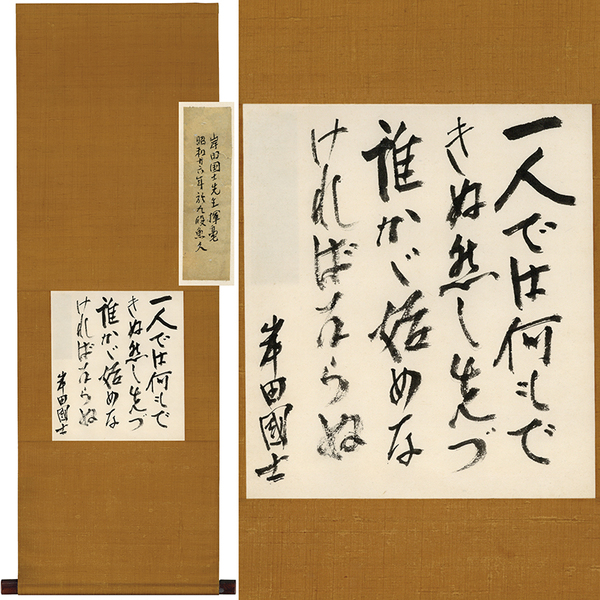 岸田国士先生揮毫
昭和廿六年於九段
一人では何もで
きぬ然し先づ
誰かゞ始めな
ければならぬ
岸田國士
一人では何もで
きぬ然し先づ
誰かゞ始めな
ければならぬ
岸田國士